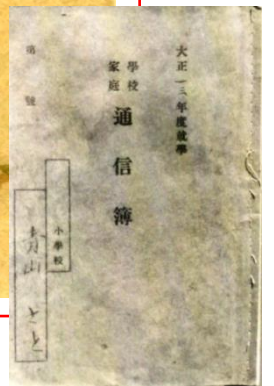 大正一三年度就學
學校
家庭
通信簿
第　號
小學校
青山